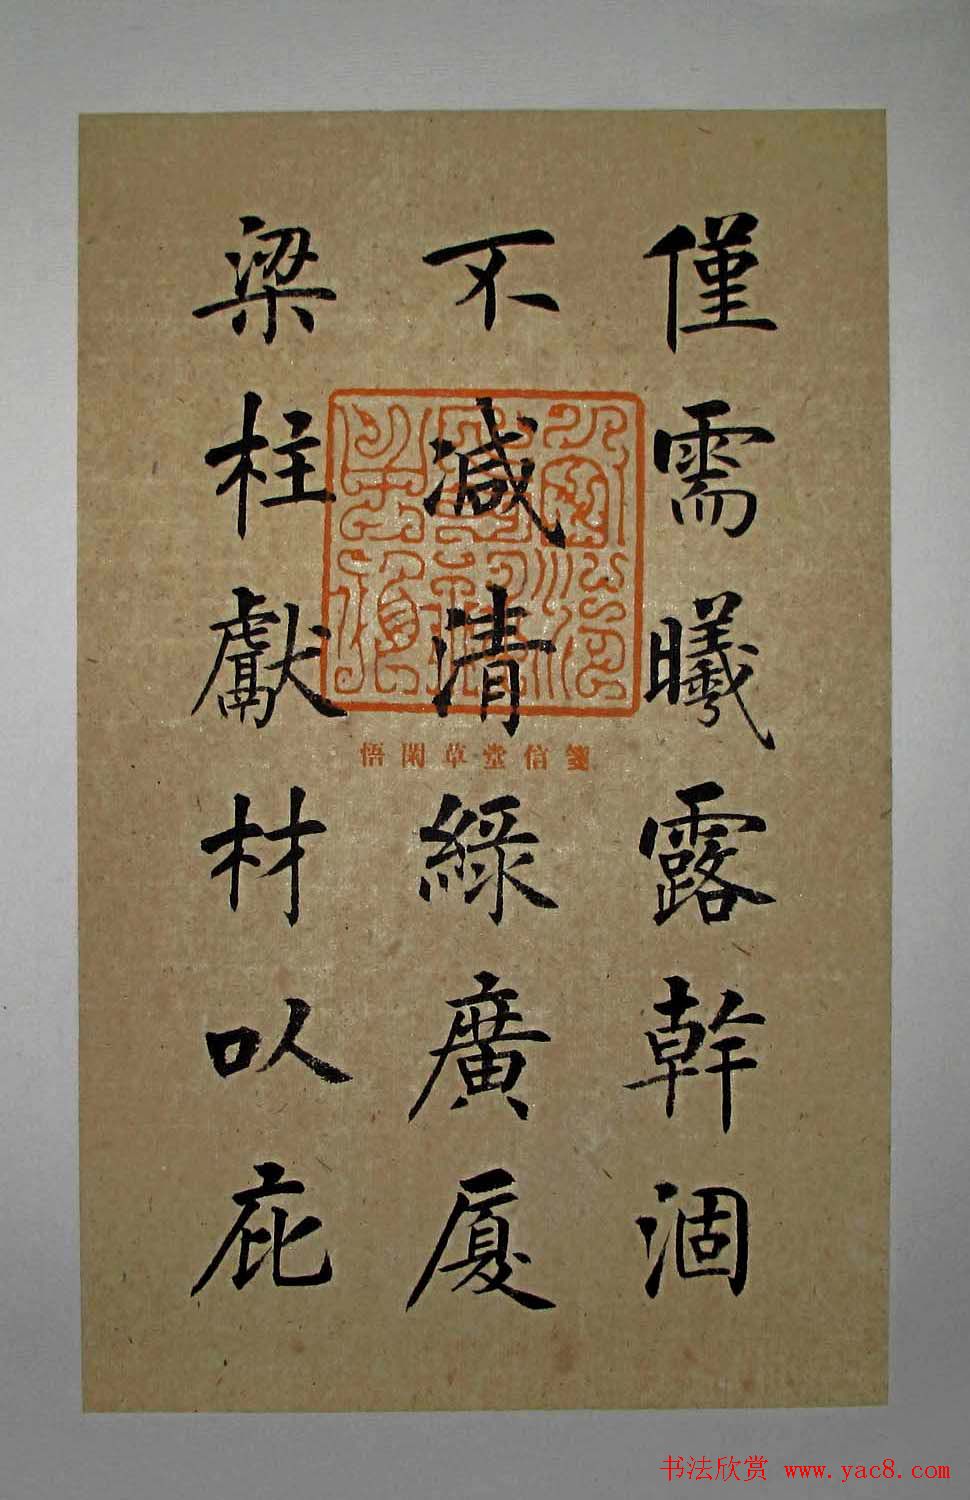 僅需曦露幹涸
不減清綠廣厦
梁柱獻材以庇
悟閑草堂信箋
书法欣赏 www.yac8.com